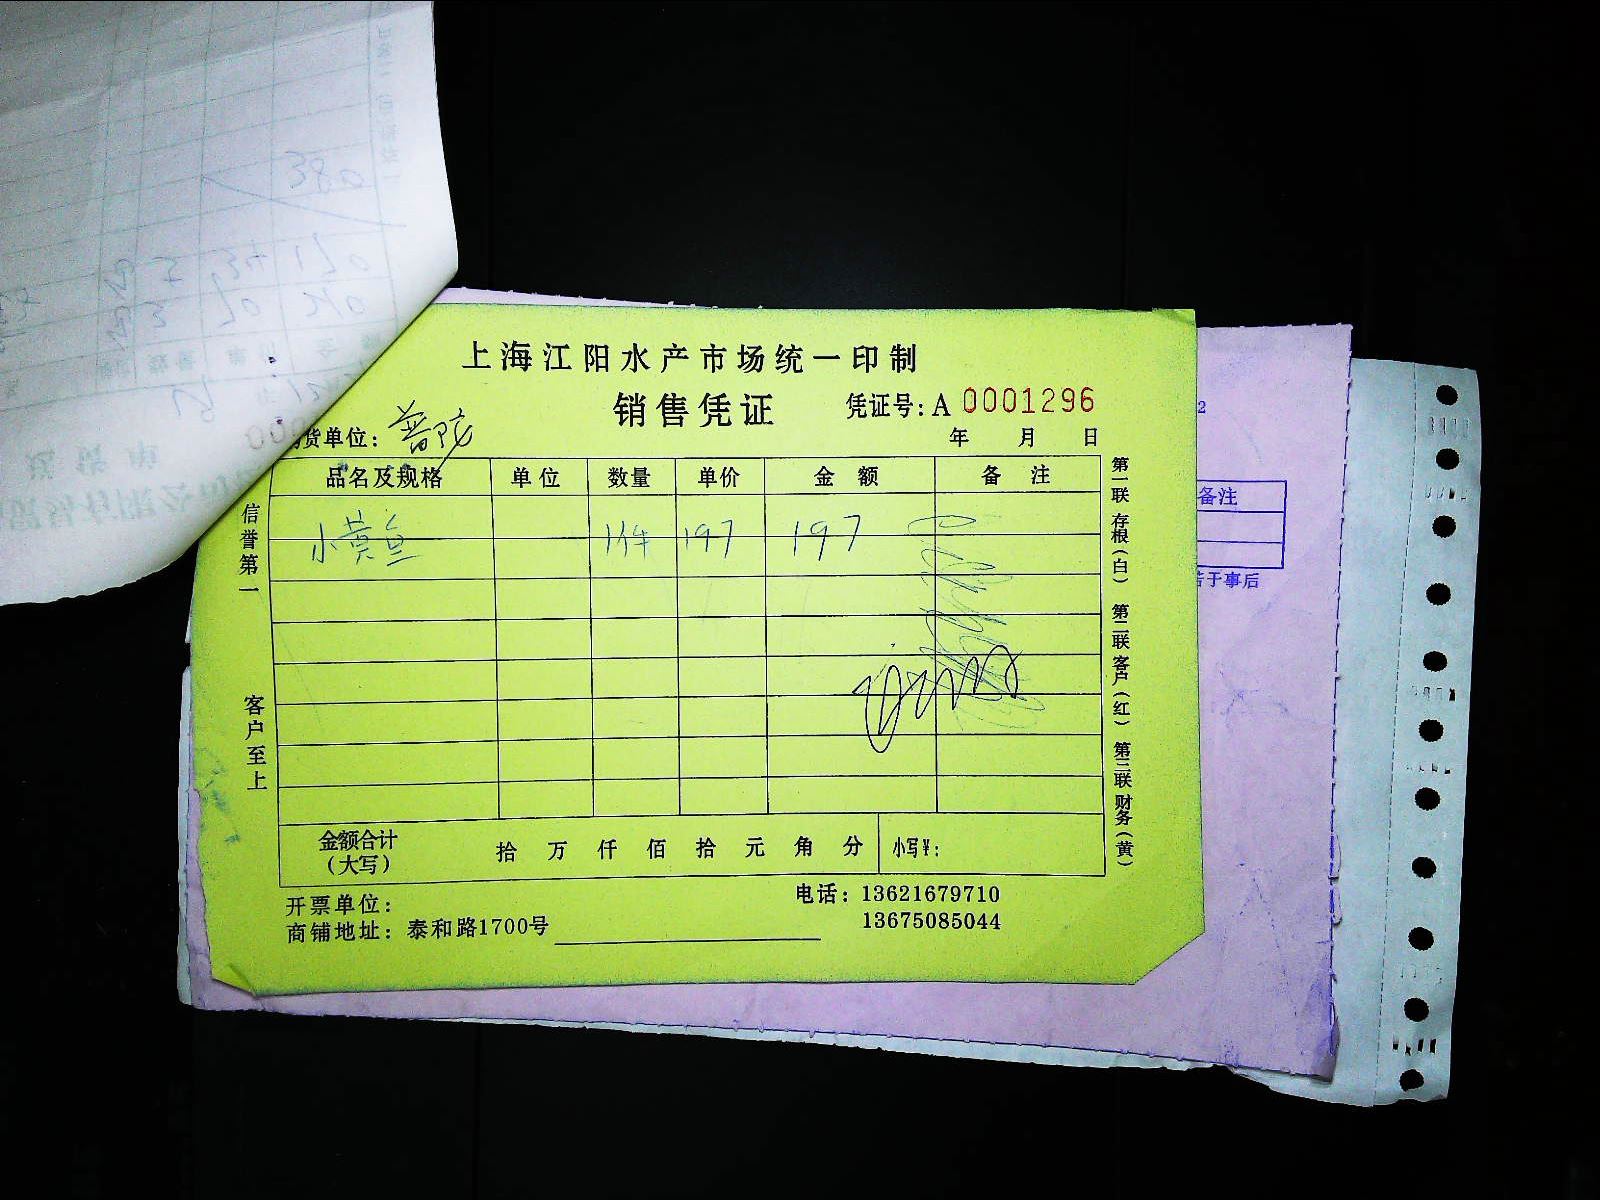 上海江阳水产市场统一印制
销售凭证
凭证号:A 0001296
货单位: 普陀
年 月 日
品名及规格 单位 数量 单价 金额 备注
小黄鱼 1件 197 197
金额合计
(大写)
拾 万 仟 佰 拾 元 角 分 小写¥:
开票单位:
商铺地址: 泰和路1700号
电话: 13621679710
13675085044
信誉第一
客户至上
第一联 存根(白) 第二联 客户(红) 第三联 财务(黄)
2
备注
于事后
380